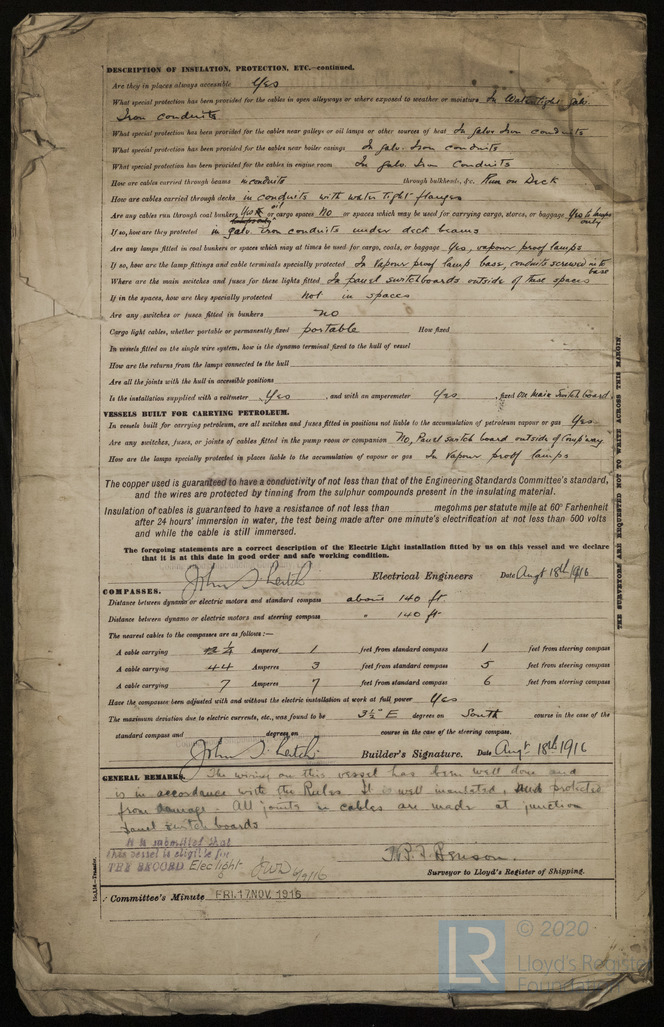 DESCRIPTION OF INSULATION, PROTECTION, ETC.—continued.
Are they in places always accessible Yes
What special protection has been provided for the cables in open alleyways or where exposed to weather or moisture In Watertight galv.
Iron conduits
What special protection has been provided for the cables near galleys or oil lamps or other sources of heat In galv. Iron conduits
What special protection has been provided for the cables near boiler casings In galv. Iron conduits
What special protection has been provided for the cables in engine room In galv. Iron conduits
How are cables carried through beams in conduits through bulkheads, &c. Run on Deck
How are cables carried through decks in conduits with water tight flanges
Are any cables run through coal bunkers or cargo spaces No or spaces which may be used for carrying cargo, stores, or baggage Yes to lamps only
If so, how are they protected in galv. iron conduits under deck beams
Are any lamps fitted in coal bunkers or spaces which may at times be used for cargo, coals, or baggage Yes, vapour proof lamps
If so, how are the lamp fittings and cable terminals specially protected In Vapour proof lamp base, conduits screwed into base
Where are the main switches and fuses for these lights fitted In panel switchboards outside of these spaces
If in the spaces, how are they specially protected not in spaces
Are any switches or fuses fitted in bunkers no
Cargo light cables, whether portable or permanently fixed portable How fixed
In vessels fitted on the single wire system, how is the dynamo terminal fixed to the hull of vessel
How are the returns from the lamps connected to the hull
Are all the joints with the hull in accessible positions
Is the installation supplied with a voltmeter Yes, and with an amperemeter Yes, fixed On Main Switch board.
VESSELS BUILT FOR CARRYING PETROLEUM.
In vessels built for carrying petroleum, are all switches and fuses fitted in positions not liable to the accumulation of petroleum vapour or gas Yes
Are any switches, fuses, or joints of cables fitted in the pump room or companion No, Panel switch board outside of
How are the lamps specially protected in places liable to the accumulation of vapour or gas In Vapour proof lamps
The copper used is guaranteed to have a conductivity of not less than that of the Engineering Standards Committee's standard,
and the wires are protected by tinning from the sulphur compounds present in the insulating material.
Insulation of cables is guaranteed to have a resistance of not less than megohms per statute mile at 60° Farhenheit
after 24 hours' immersion in water, the test being made after one minute's electrification at not less than 500 volts
and while the cable is still immersed.
The foregoing statements are a correct description of the Electric Light installation fitted by us on this vessel and we declare
that it is at this date in good order and safe working condition.
John Leitch Electrical Engineers Date Augt 18th 1916
COMPASSES.
Distance between dynamo or electric motors and standard compass about 140 ft
Distance between dynamo or electric motors and steering compass " 140 ft
The nearest cables to the compasses are as follows:—
A cable carrying Amperes 1 feet from standard compass 1 feet from steering compass
A cable carrying 44 Amperes 3 feet from standard compass 5 feet from steering compass
A cable carrying 7 Amperes 7 feet from standard compass 6 feet from steering compass
Have the compasses been adjusted with and without the electric installation at work at full power Yes
The maximum deviation due to electric currents, etc., was found to be 3½° E degrees on South course in the case of the
standard compass and degrees on course in the case of the steering compass.
John Leitch. Builder's Signature. Date Augt 18th 1916
GENERAL REMARKS. The wiring on this vessel has been well done and
is in accordance with the Rules. It is well insulated, and protected
from damage. All joints in cables are made at junction
panel switch boards
It is submitted that
this vessel is eligible for
THE RECORD Elec light 6/9/16
Surveyor to Lloyd's Register of Shipping.
Committee's Minute FRI.17 NOV. 1916
THE SURVEYORS ARE REQUESTED NOT TO WRITE ACROSS THIS MARGIN.
LR
© 2020
Lloyd's Register
Foundation